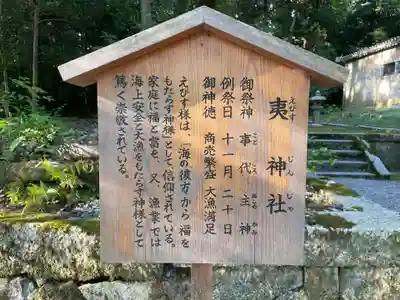 夷神社
えびす じんじゃ
御祭神 事代主神
こと しろ ぬし かみ
例祭日 十一月二十日
御神徳 商売繁盛 大漁満足
えびす様は、「海の彼方から福を
もたらす神様」として信仰されている。
家庭に福と富を、又、漁業では
海上安全と大漁をもたらす神様として
篤く崇敬されている。